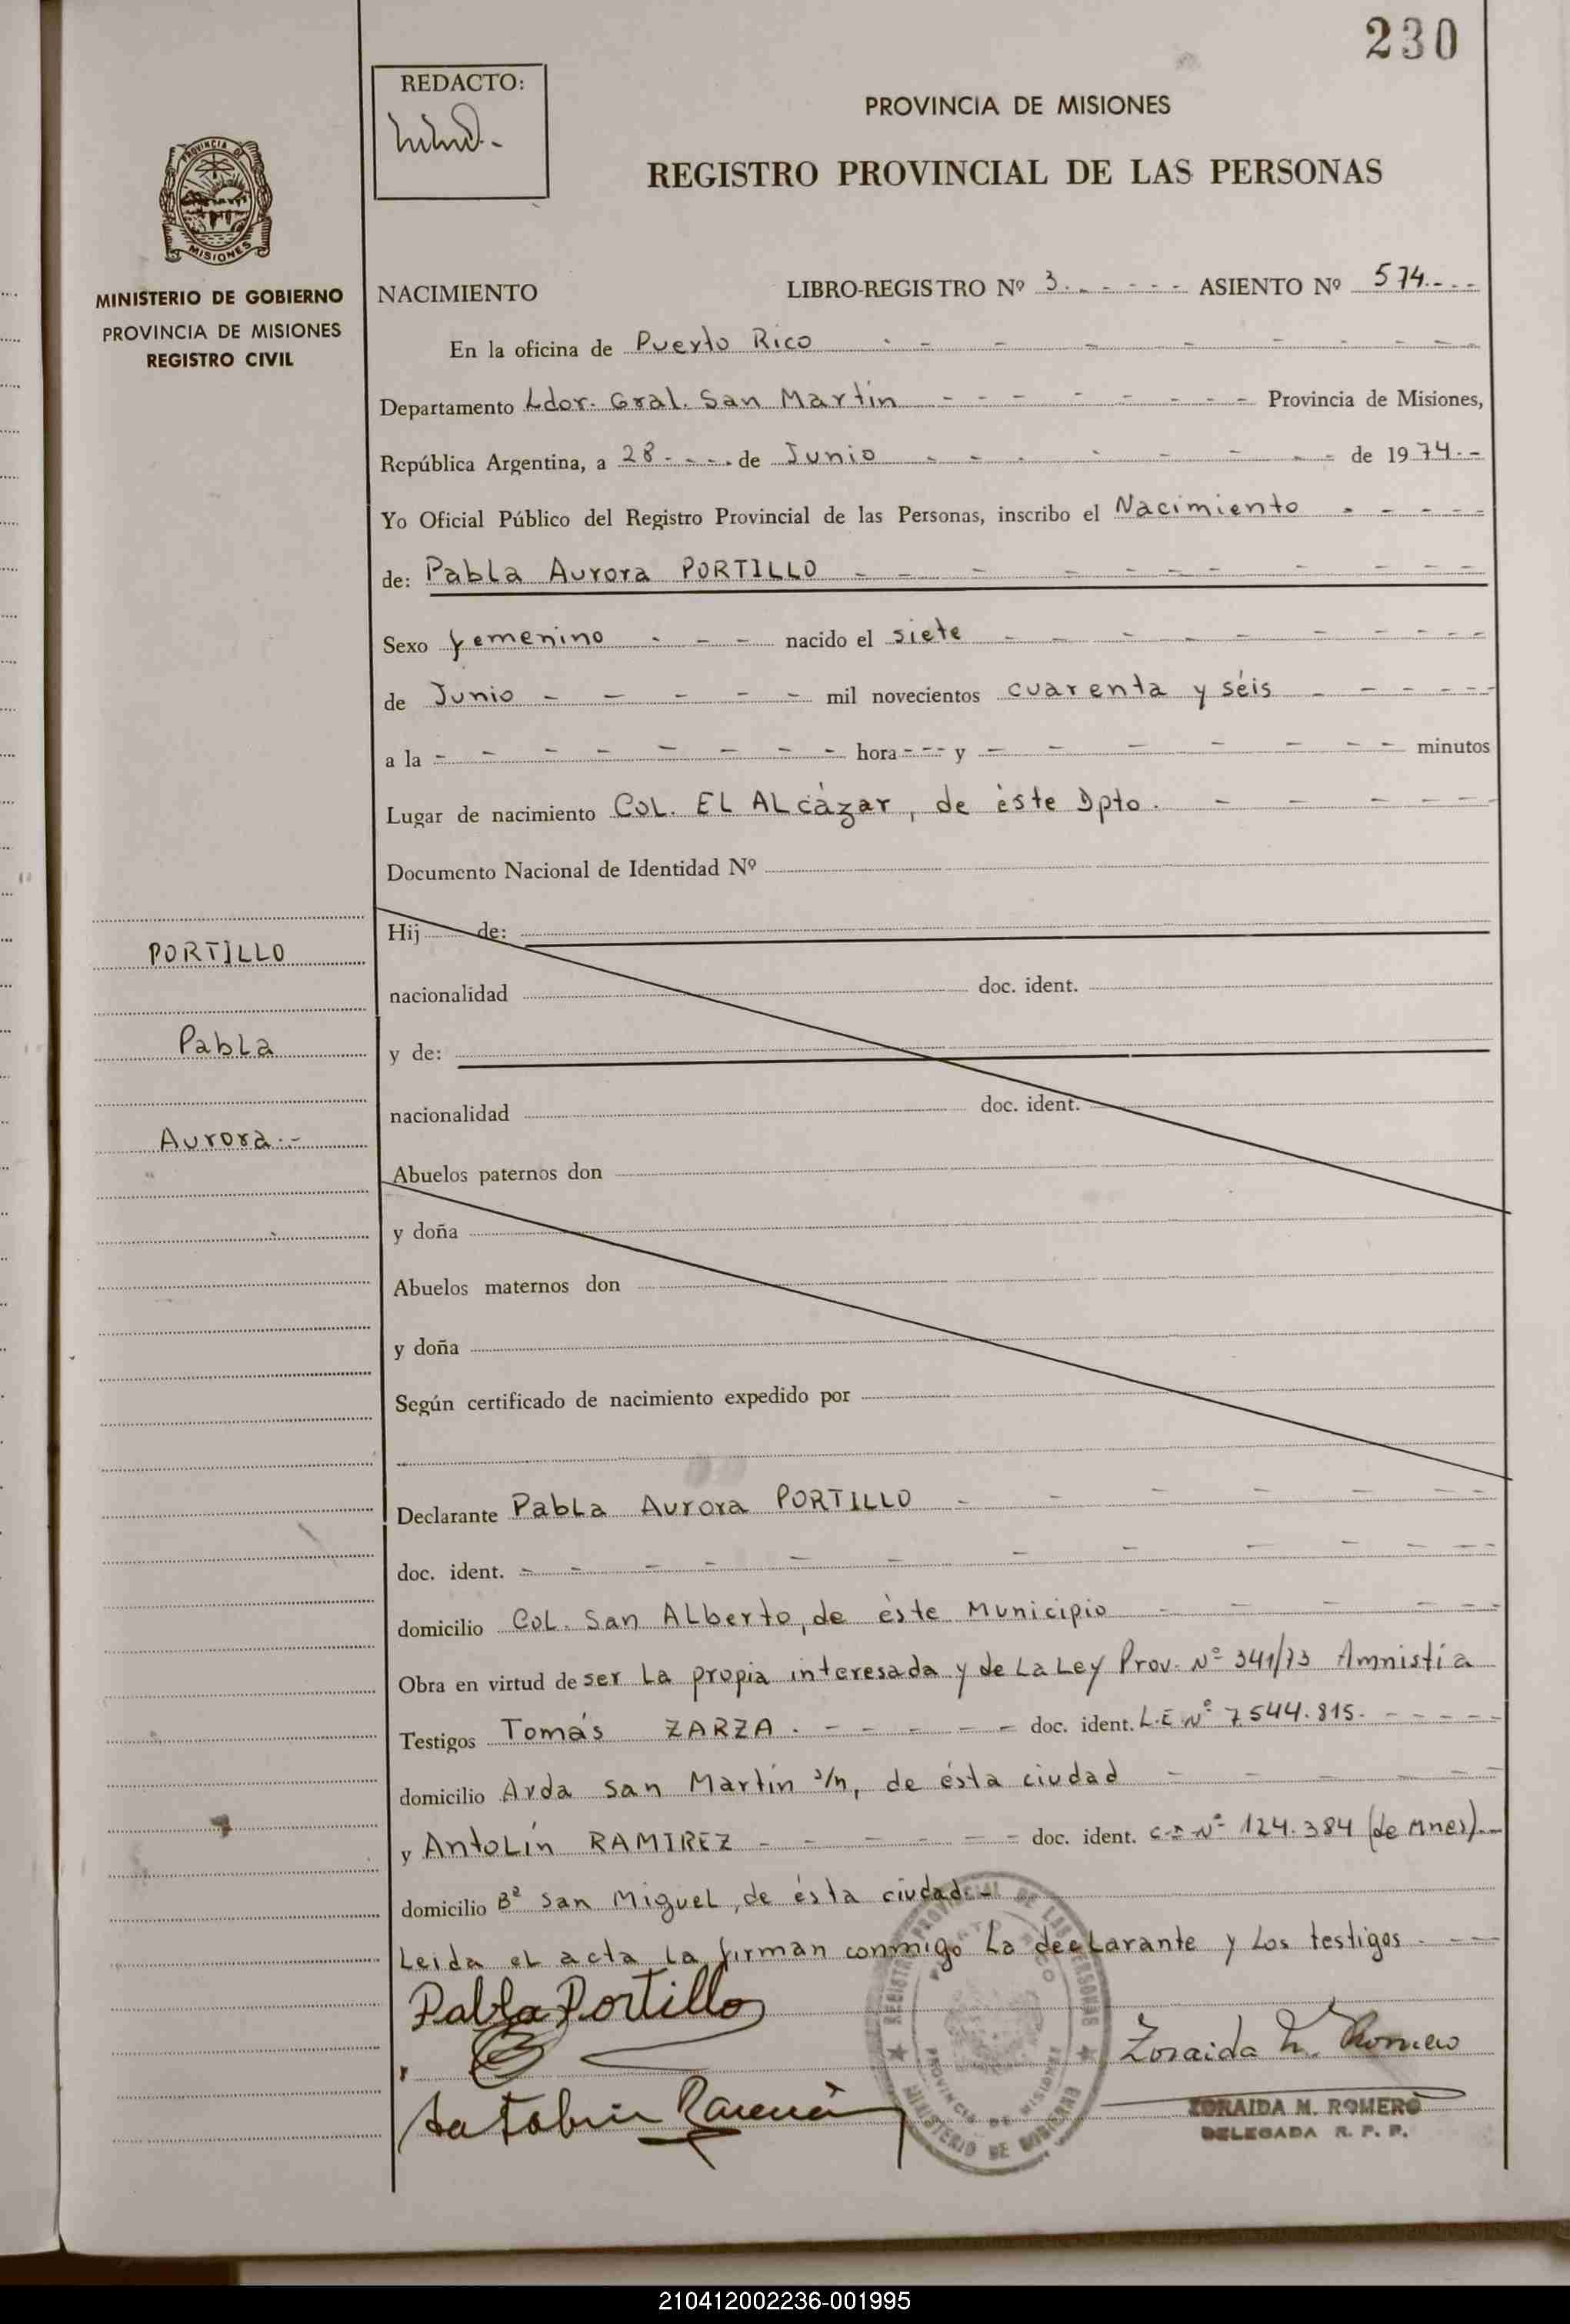 230
REDACTO:
PROVINCIA DE MISIONES
REGISTRO PROVINCIAL DE LAS PERSONAS
PROVINCIA DE
MISIONES
MINISTERIO DE GOBIERNO
PROVINCIA DE MISIONES
REGISTRO CIVIL
NACIMIENTO LIBRO-REGISTRO Nº 3. - - - - - ASIENTO Nº 574. - - -
En la oficina de Puerto Rico - - - - - - - - - -
Departamento Ldor. Gral. San Martín - - - - - - - - Provincia de Misiones,
República Argentina, a 28 - - - . de Junio - - - - - - - - de 1974. -
Yo Oficial Público del Registro Provincial de las Personas, inscribo el Nacimiento - - - - -
de: Pabla Aurora PORTILLO - - - - - - - - - - -
Sexo femenino - - - - nacido el siete - - - - - - - - - -
de Junio - - - - - mil novecientos cuarenta y séis - - - - - -
a la - - - - - - - - hora - - - y - - - - - - - - minutos
Lugar de nacimiento COL. EL ALcázar, de éste Dpto. - - - - - -
Documento Nacional de Identidad Nº
PORTILLO
Pabla
Aurora.-
Hij de:
nacionalidad doc. ident.
y de:
nacionalidad doc. ident.
Abuelos paternos don
y doña
Abuelos maternos don
y doña
Según certificado de nacimiento expedido por
Declarante Pabla Aurora PORTILLO - - - - - - -
doc. ident. - - - - - - - - - - - -
domicilio COL. San ALberto, de éste Municipio - - - - - -
Obra en virtud de ser La propia interesada y de La Ley Prov. Nº 341/73 Amnistía
Testigos Tomás ZARZA. - - - - - - doc. ident. L.E Nº 7.544.815. - - - - -
domicilio Avda San Martín s/n, de ésta ciudad - - - - - -
y AntoLín RAMIREZ - - - - - - doc. ident. C.I Nº 124.384 (de Mnes). - -
domicilio Bº San MigueL, de ésta ciudad. -
Leida eL acta La firman conmigo La decLarante y Los testigos. - - -
Pabla Portillo
REGISTRO PROVINCIAL DE LAS PERSONAS
PUERTO RICO
PROVINCIA DE MISIONES
MINISTERIO DE GOBIERNO
Zoraida M. Romero
ZORAIDA M. ROMERO
DELEGADA R. P. P.
210412002236-001995